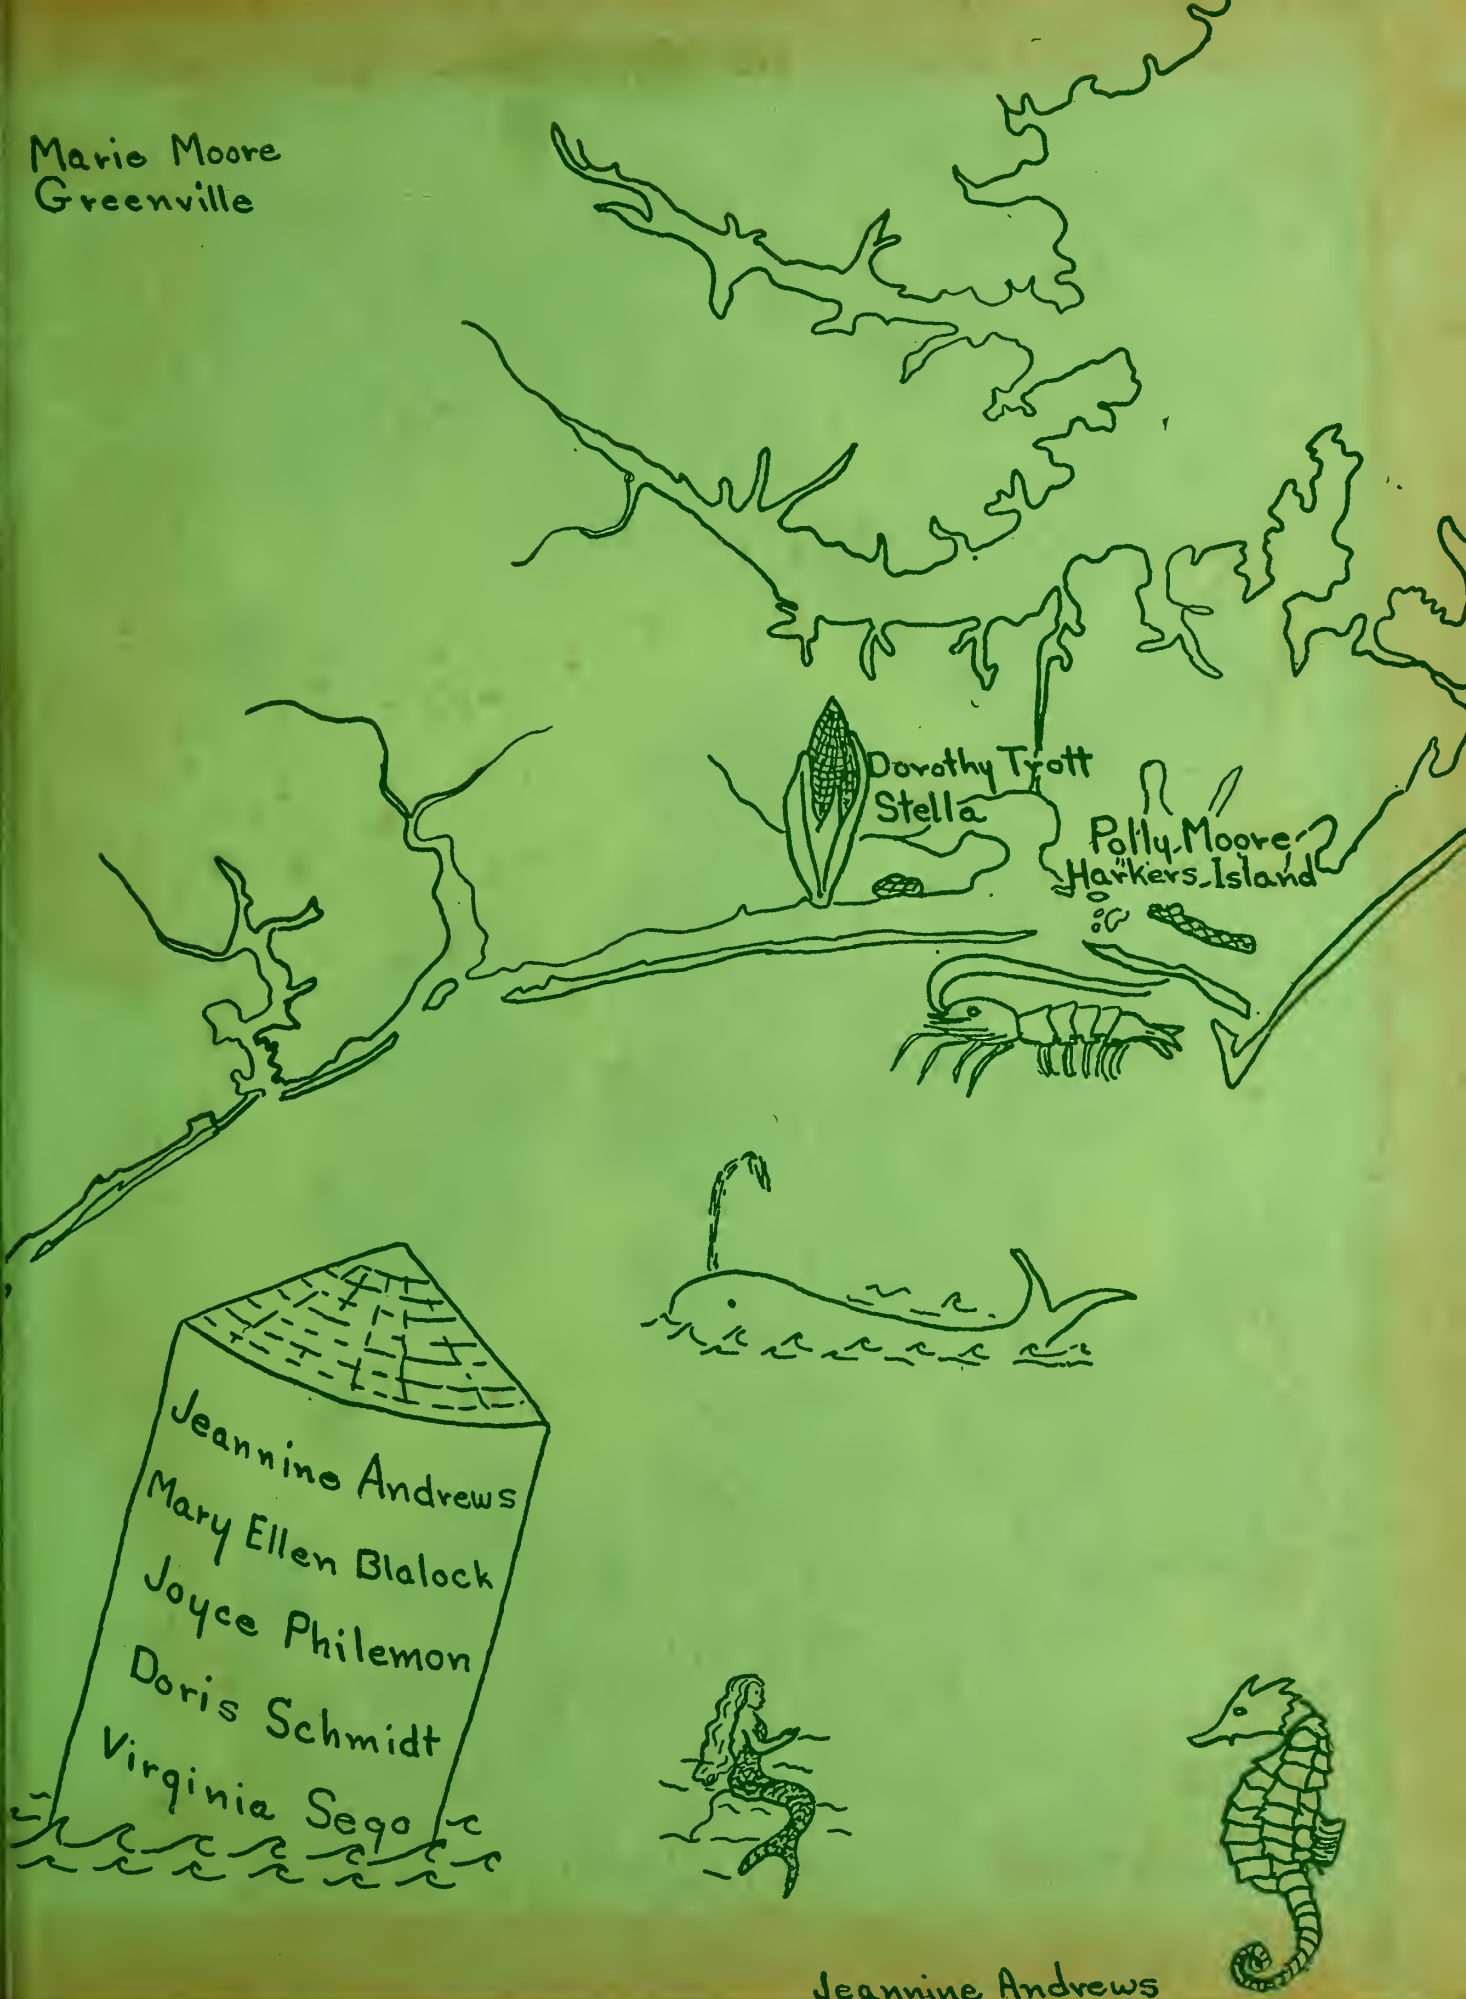 Marie Moore
Greenville
Dorothy Trott
Stella
Polly Moore
Harkers Island
Jeannine Andrews
Mary Ellen Blalock
Joyce Philemon
Doris Schmidt
Virginia Sego
Jeannine Andrews